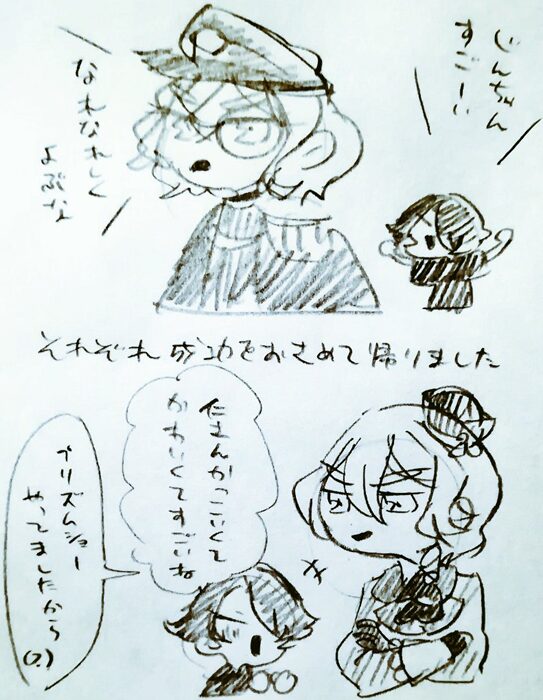 じんちゃん
すごーい
なれなれしく
よぶな
それぞれ成功をおさめて帰りました
仁さんかっこいくて
かわいくてすごいね
プリズムショー
やってましたから
(?)